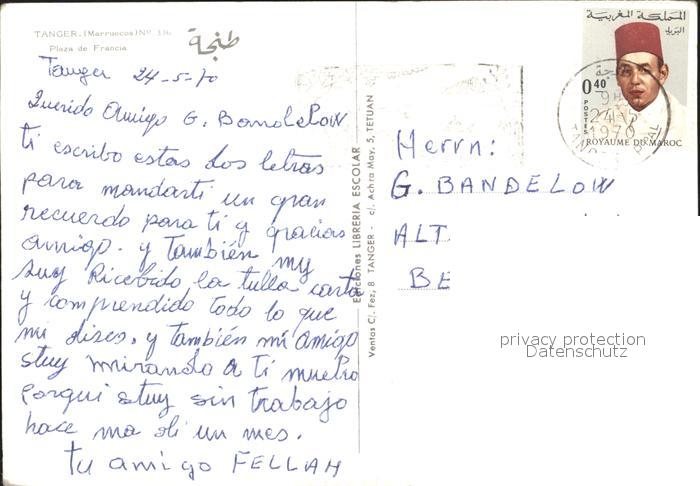 TANGER. (Marruecos) Nº 336
Plaza de Francia
طنجة
Tanger 24-5-70
Querido Amigo G. Bandelow
ti escribo estas dos letras
para mandarti un gran
recuerdo para ti y gracias
amigo. y También my
suy Ricebido la tulla carta
y comprendido todo lo que
mi dises. y también mi amigo
stuy mirando a ti mucho
porqui stuy sin trabajo
hace ma di un mes.
tu amigo FELLAH
Ediciones LIBRERIA ESCOLAR
Ventas C/. Fez, 8 TANGER - c/. Achra May, 5, TETUAN
المملكة المغربية
البريد
0,40
POSTES
ROYAUME DU MAROC
طنجة
24 - 5
1970
Herrn:
G. BANDELOW
ALT
BE
privacy protection
Datenschutz